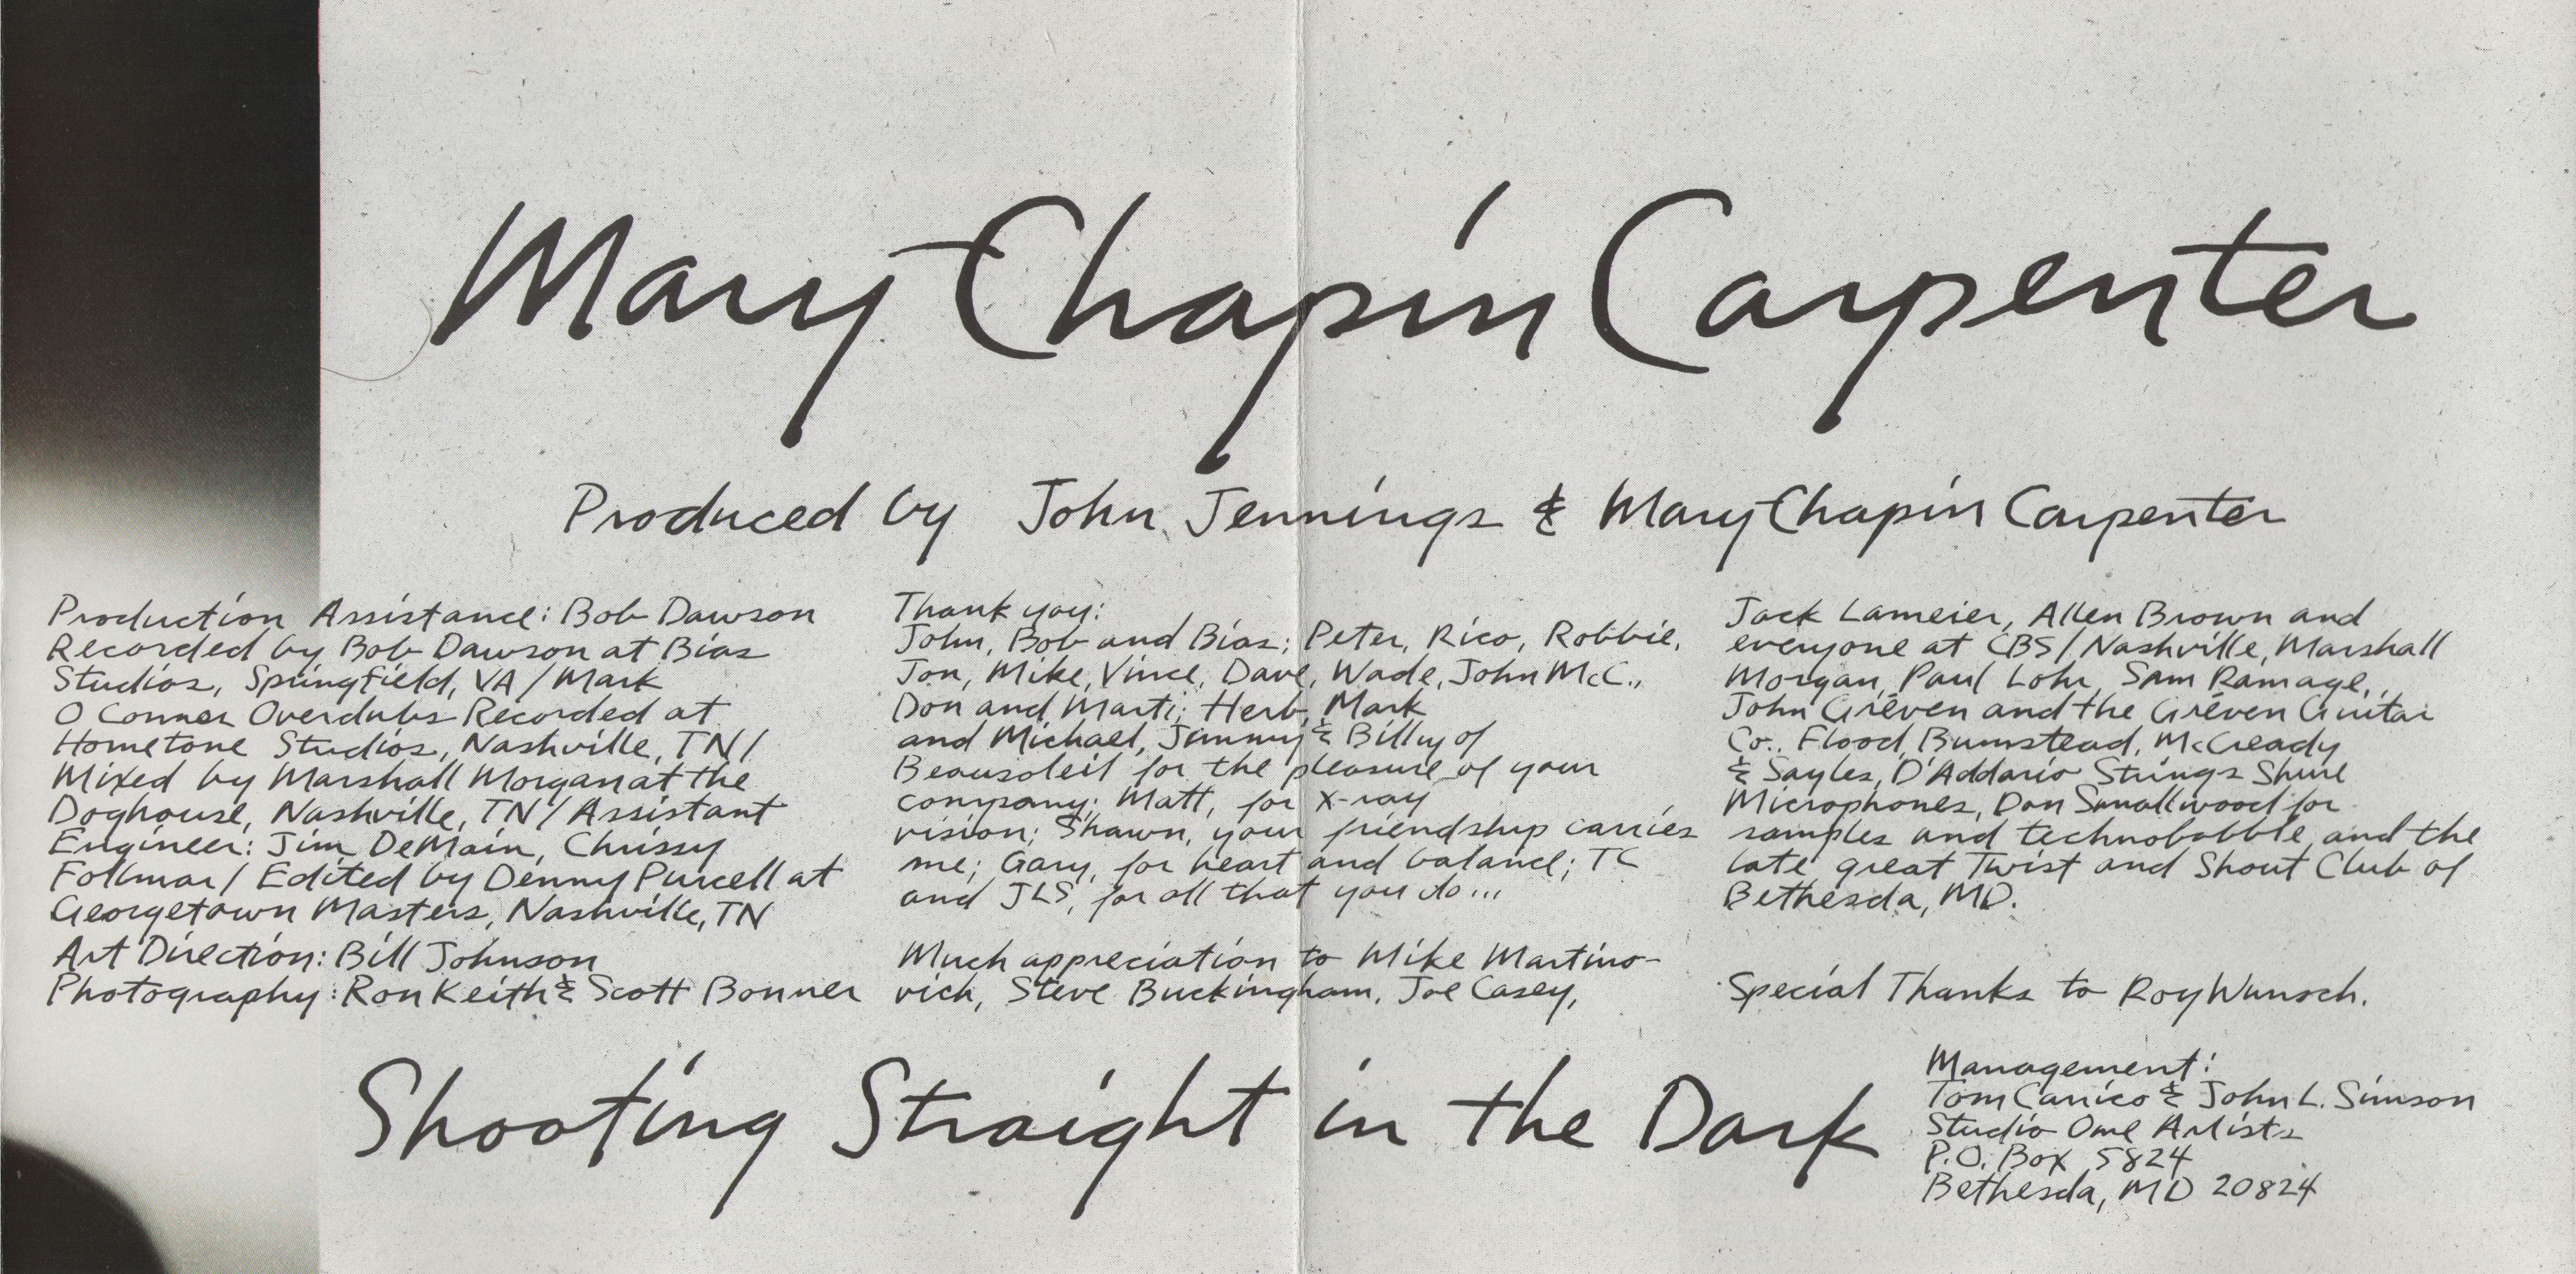 Mary Chapin Carpenter
Produced by John Jennings & Mary Chapin Carpenter
Production Assistance: Bob Dawson
Recorded by Bob Dawson at Bias
Studios, Springfield, VA / Mark
O Conner Overdubs Recorded at
Hometone Studios, Nashville, TN /
Mixed by Marshall Morgan at the
Doghouse, Nashville, TN / Assistant
Engineer: Jim DeMain, Chrissy
Follmar / Edited by Denny Purcell at
Georgetown Masters, Nashville, TN
Art Direction: Bill Johnson
Photography: Ron Keith & Scott Bonner
Thank you:
John, Bob and Bias; Peter, Rico, Robbie,
Jon, Mike, Vince, Dave, Wade, John McC.,
Don and Marti; Herb, Mark
and Michael, Jimmy & Billy of
Beausoleil for the pleasure of your
company; Matt, for x-ray
vision; Shawn, your friendship carries
me; Gary, for heart and balance; TC
and JLS, for all that you do...
Much appreciation to Mike Martino-
vich, Steve Buckingham, Joe Casey,
Jack Lameier, Allen Brown and
everyone at CBS / Nashville, Marshall
Morgan, Paul Lohr, Sam Ramage,
John Greven and the Greven Guitar
Co., Flood, Bumstead, McCready
& Sayles, D'Addario Strings Shure
Microphones, Don Smallwood for
samples and technobabble and the
late great Twist and Shout Club of
Bethesda, MD.
Special Thanks to Roy Wunsch.
Shooting Straight in the Dark
Management:
Tom Carrico & John L. Simson
Studio One Artists
P.O. Box 5824
Bethesda, MD 20824